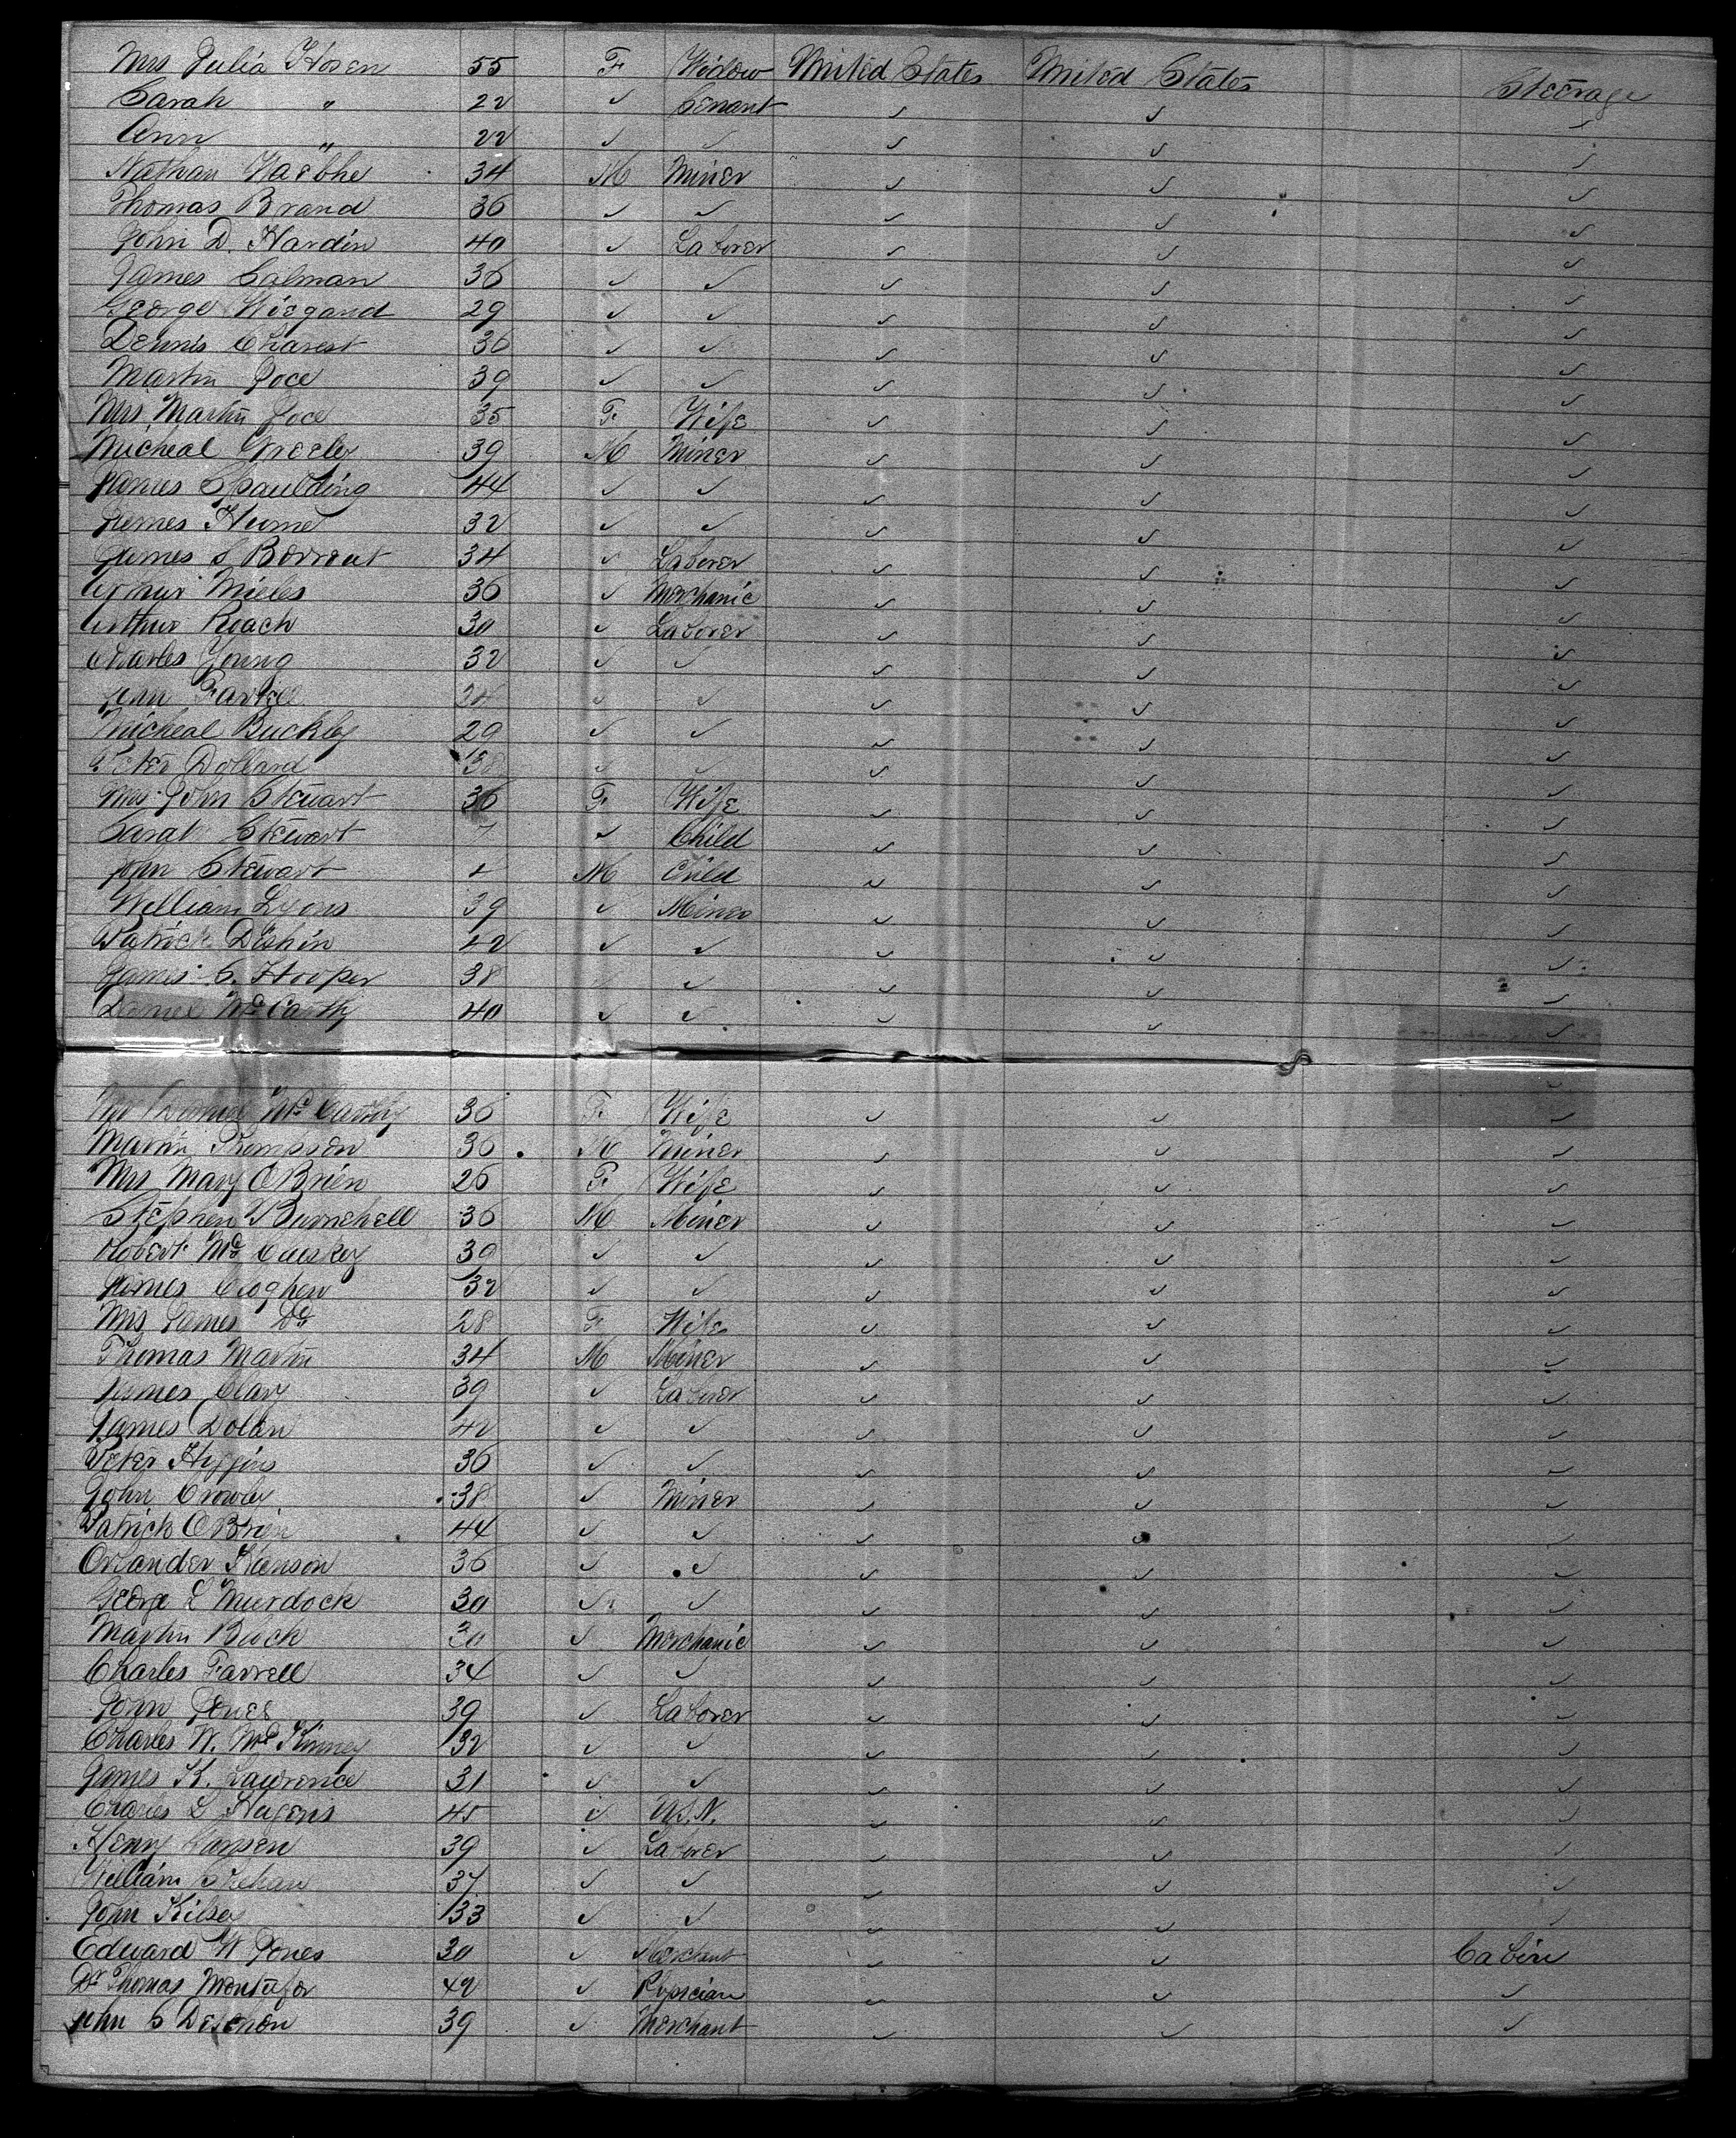 Mrs Julia Hosen 55 F Widow United States United States Steerage
Sarah " 22 ✓ Servant ✓ ✓ ✓
Ann " 22 ✓ ✓ ✓ ✓ ✓
Nathan 34 M Miner ✓ ✓ ✓
Thomas Brand 36 ✓ ✓ ✓ ✓ ✓
John D. Hardin 40 ✓ Laborer ✓ ✓ ✓
James Salman 36 ✓ ✓ ✓ ✓ ✓
George Wiegand 29 ✓ ✓ ✓ ✓ ✓
Dennis Charest 36 ✓ ✓ ✓ ✓ ✓
Martin Joce 39 ✓ ✓ ✓ ✓ ✓
Mrs Martin Joce 35 F Wife ✓ ✓ ✓
Micheal Greeley 39 M Miner ✓ ✓ ✓
James Spaulding 44 ✓ ✓ ✓ ✓ ✓
James Hume 32 ✓ ✓ ✓ ✓ ✓
James S 34 ✓ Laborer ✓ ✓ ✓
Arthur Mieles 36 ✓ Merchanic ✓ ✓ ✓
Arthur Roach 30 ✓ Laborer ✓ ✓ ✓
Charles Young 32 ✓ ✓ ✓ ✓ ✓
John Farrell 24 ✓ ✓ ✓ ✓ ✓
Micheal Buckley 29 ✓ ✓ ✓ ✓ ✓
Peter Dollard 38 ✓ ✓ ✓ ✓ ✓
Mrs John Stewart 36 F Wife ✓ ✓ ✓
Sarah Stewart 7 ✓ Child ✓ ✓ ✓
John Stewart 4 M Child ✓ ✓ ✓
William Lyons 39 ✓ Miner ✓ ✓ ✓
Patrick Dishin 42 ✓ ✓ ✓ ✓ ✓
James S. Hooper 38 ✓ ✓ ✓ ✓ ✓
Daniel McCarthy 40 ✓ ✓ ✓ ✓ ✓
Mrs Daniel McCarthy 36 F Wife ✓ ✓ ✓
Martin Thompson 36 M Miner ✓ ✓ ✓
Mrs Mary OBrien 26 F Wife ✓ ✓ ✓
Stephen Burnchell 36 M Miner ✓ ✓ ✓
Robert McCluskey 39 ✓ ✓ ✓ ✓ ✓
James Cloghen 32 ✓ ✓ ✓ ✓ ✓
Mrs James Do 28 F Wife ✓ ✓ ✓
Thomas Martin 34 M Miner ✓ ✓ ✓
James Clary 39 ✓ Laborer ✓ ✓ ✓
James Dolan 42 ✓ ✓ ✓ ✓ ✓
Peter Higgins 36 ✓ ✓ ✓ ✓ ✓
John Crowley 38 ✓ Miner ✓ ✓ ✓
Patrick OBrien 44 ✓ ✓ ✓ ✓ ✓
Orlander Hanson 36 ✓ ✓ ✓ ✓ ✓
George L Murdock 30 ✓ ✓ ✓ ✓ ✓
Martin Buck 30 ✓ Merchanic ✓ ✓ ✓
Charles Farrell 34 ✓ ✓ ✓ ✓ ✓
John Jones 39 ✓ Laborer ✓ ✓ ✓
Charles W. McKinney 32 ✓ ✓ ✓ ✓ ✓
James K. Lawrence 31 ✓ ✓ ✓ ✓ ✓
Charles L Hugens 45 ✓ U.S.N. ✓ ✓ ✓
Henry Hansen 39 ✓ Laborer ✓ ✓ ✓
William Shehan 37 ✓ ✓ ✓ ✓ ✓
John Kilsey 33 ✓ ✓ ✓ ✓ ✓
Edward W Jones 30 ✓ Merchant ✓ ✓ Cabin
Dr Thomas Montafor 42 ✓ Physcian ✓ ✓ ✓
John S Deschon 39 ✓ Merchant ✓ ✓ ✓